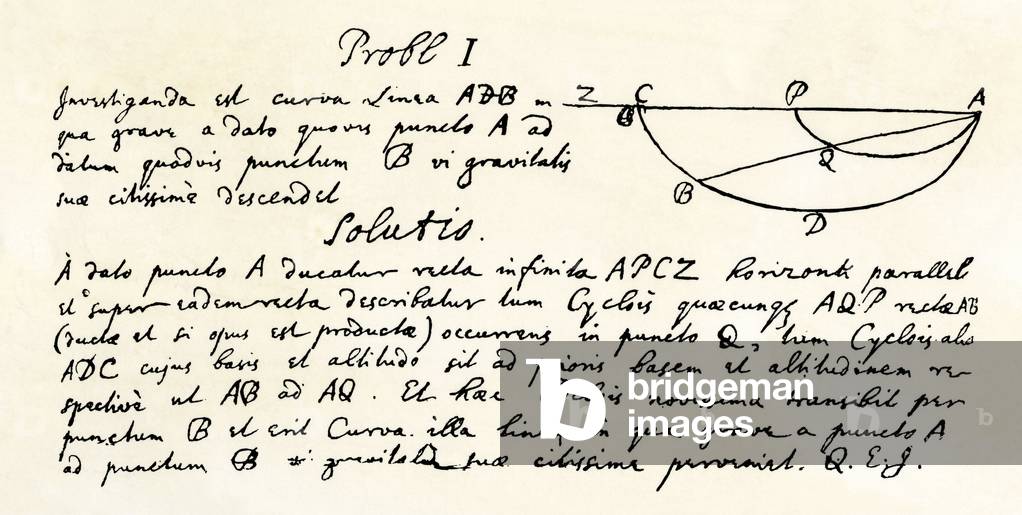 Probl I
Investiganda est curva Linea ADB in
qua grave a dato quovis puncto A ad
datum quodvis punctum B vi gravitatis
suæ citissimè descendet
Z C P A
Q
B
D
Solutio.
À dato puncto A ducatur recta infinita APCZ horizonti parallela
et super eadem recta describatur tum Cyclois quæcunqꝫ AQP rectæ AB
(ductæ et si opus est productæ) occurrens in puncto Q, tum Cyclois alia
ADC cujus basis et altitudo sit ad prioris basem et altitudinem re-
spectivè ut AB ad AQ. Et hæc novissima transibit per
punctum B et erit Curva illa in grave a puncto A
ad punctum B vi gravitatis suæ citissime perveniet. Q.E.J.
b
bridgeman
images
b